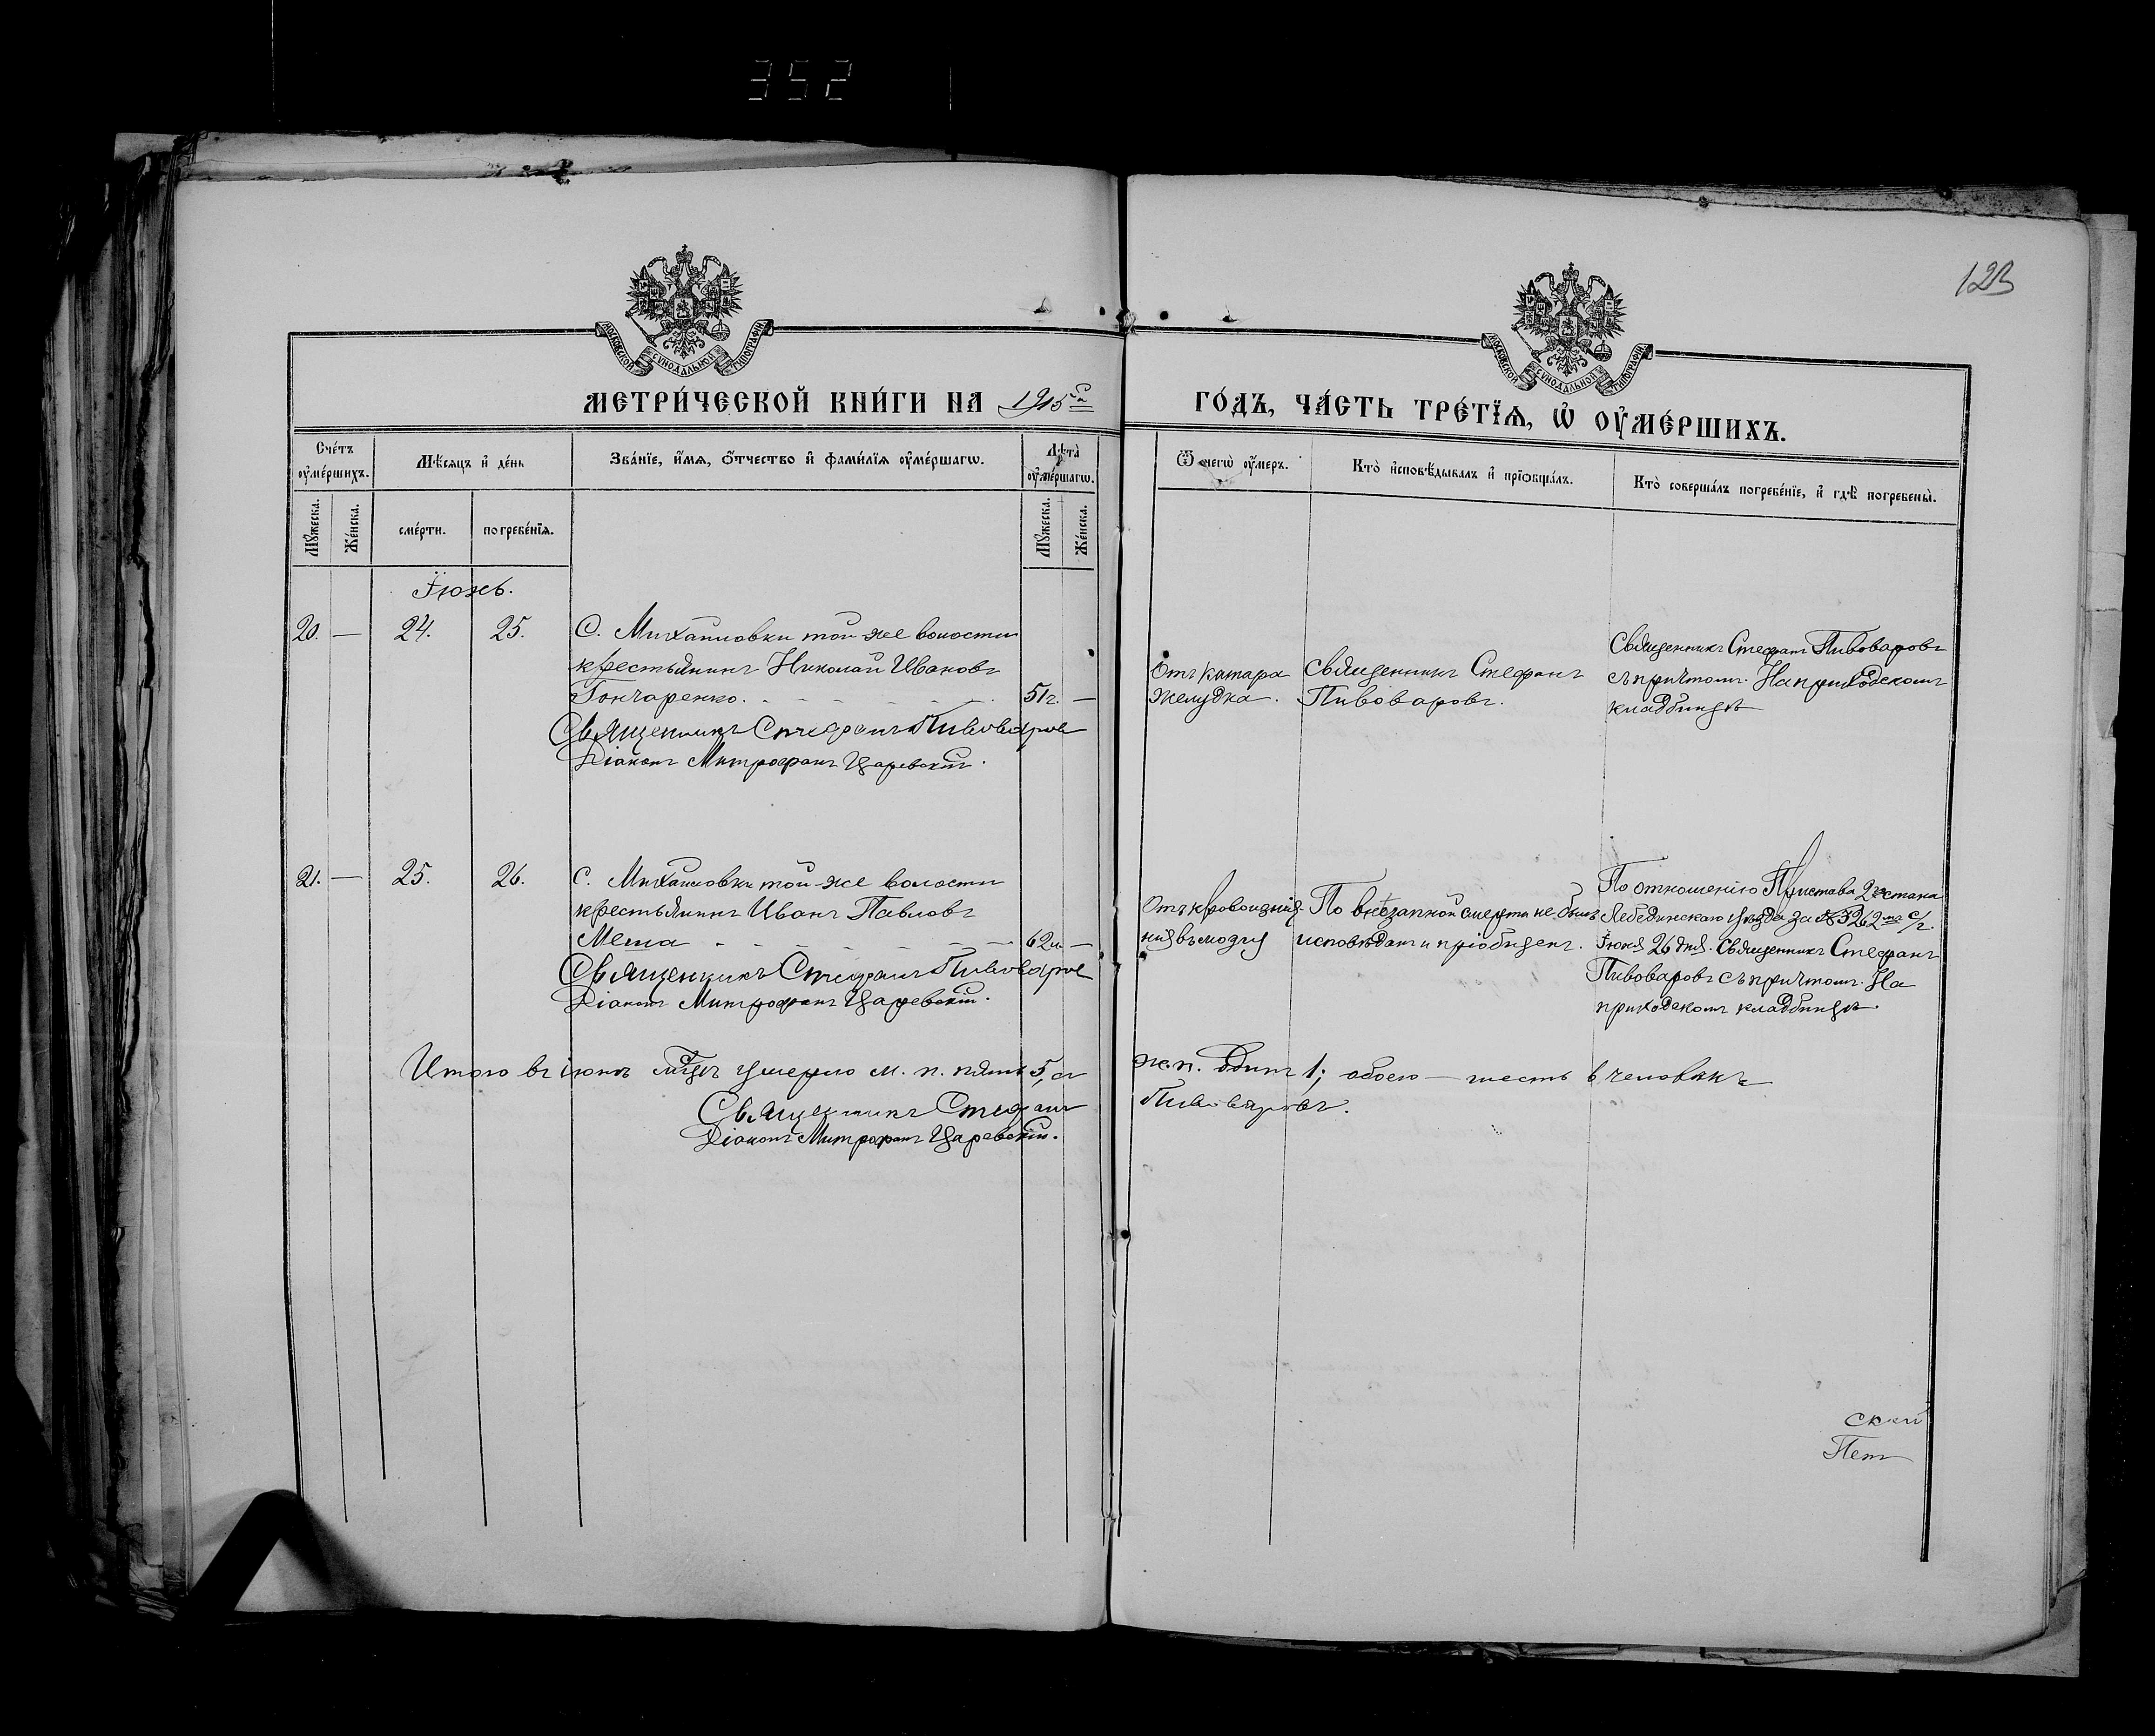 352
123
МОСКОВСКОЙ СѴНОДАЛЬНОЙ ТИПОГРАФІИ.
МОСКОВСКОЙ СѴНОДАЛЬНОЙ ТИПОГРАФІИ.
МЕТРИ́ЧЕСКОЙ КНИ́ГИ НА 1915
ГО́ДЪ, ЧА́СТЬ ТРЕ́ТЇѦ, Ѡ҆ ОУ҆МЕ́РШИХЪ.
Сче́тъ оу҆ме́ршихъ.
Мѣ́сяцъ и҆ де́нь
Зва́нїе, и҆́мѧ, ѻ҆́тчество и҆ фами́лїѧ оу҆ме́ршагѡ.
Лѣ́та̀ оу҆ме́ршагѡ.
Ѿ чегѡ̀ оу҆́меръ.
Кто̀ и҆сповѣ́дывалъ и҆ прїѻбща́лъ.
Кто̀ соверша́лъ погребе́нїе, и҆ гдѣ̀ погребены̀.
Мꙋ́жеска.
Же́нска.
сме́рти.
погребе́нїѧ.
Мꙋ́жеска.
Же́нска.
Іюнь.
20. — 24. 25. С. Михайловки той-же волости
крестьянинъ Николай Ивановъ
Гончаренко. 51г. —
Священникъ Стефанъ Пивоваровъ
Діаконъ Митрофанъ Царевскій.
Отъ катара
желудка.
Священникъ Стефанъ
Пивоваровъ.
Священникъ Стефанъ Пивоваровъ
съ причтомъ. На приходскомъ
кладбищѣ
21. — 25. 26. С. Михайловки той-же волости
крестьянинъ Иванъ Павловъ
Меша 62л. —
Священникъ Стефанъ Пивоваровъ
Діаконъ Митрофанъ Царевскій.
Отъ кровоизлія-
нія въ мозгу
По внезапной смерти не былъ
исповѣданъ и пріобщенъ.
По отношенію Пристава 2го стана
Лебединскаго уѣзда за № 3262 с/г.
Іюня 26 дня. Священникъ Стефанъ
Пивоваровъ съ причтомъ. На
приходскомъ кладбищѣ.
Итого въ іюнѣ м-цѣ умерло м. п. пять 5, а
ж. п. одинъ 1; обоего — шесть 6 человѣкъ
Священникъ Стефанъ Пивоваровъ.
Діаконъ Митрофанъ Царевскій.
ский
Пет